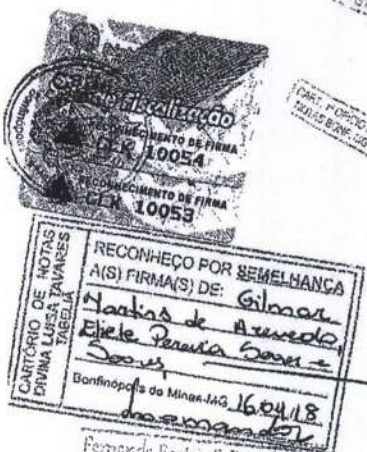 Selo de Fiscalização
RECONHECIMENTO DE FIRMA
CLK 10054
RECONHECIMENTO DE FIRMA
CLK 10053
CART. 1º OFICIO
NOTAS BONF.
CARTÓRIO DE NOTAS
DIVINA LUISA TAVARES
TABELIÃ
RECONHEÇO POR SEMELHANÇA
A(S) FIRMA(S) DE: Gilmar
Martins de Azevedo,
Eliete Pereira Soares e
Soares
Bonfinópolis de Minas-MG 16/04/18